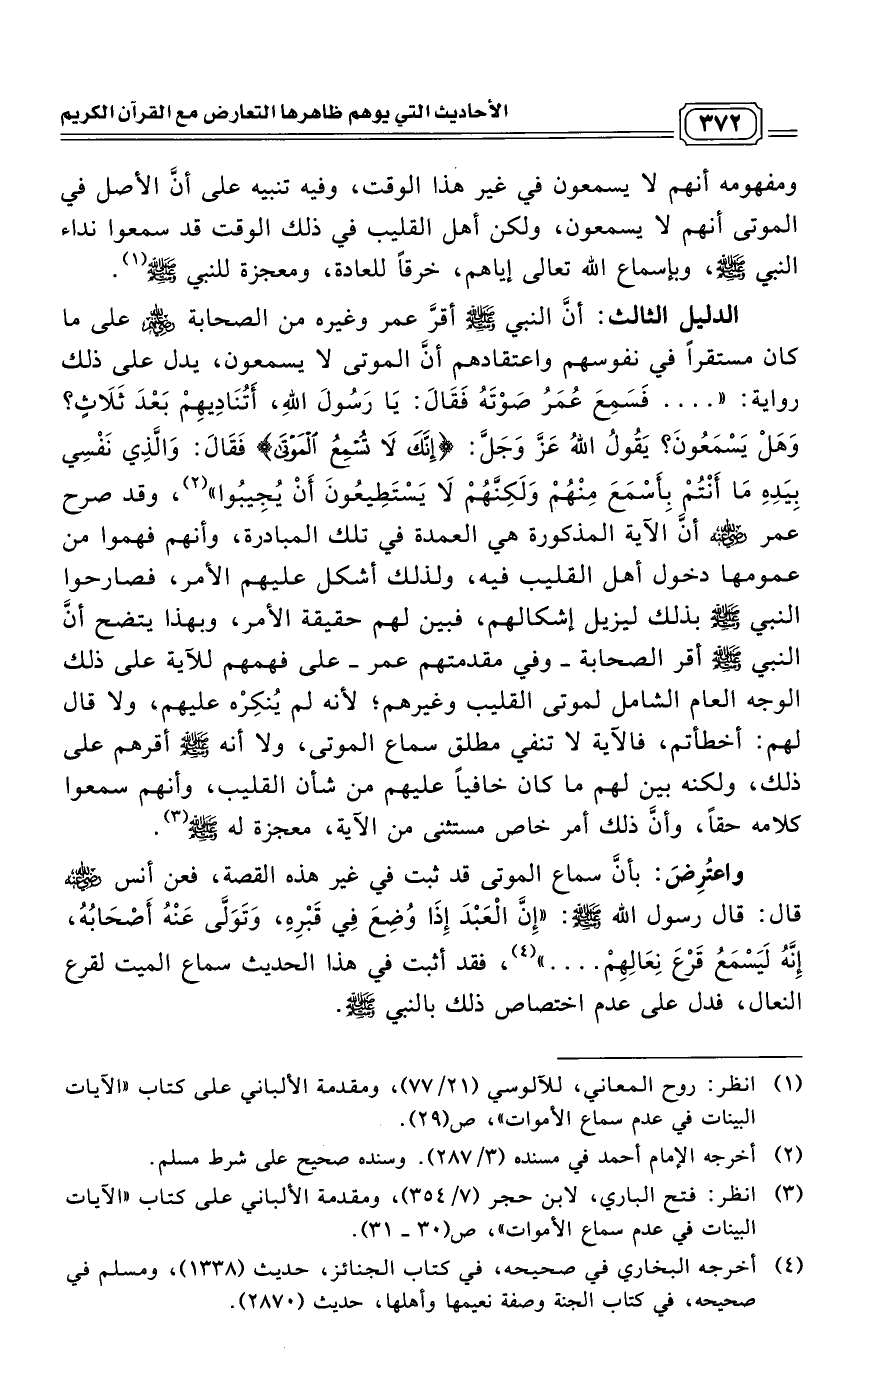 ٣٧٢
الأحاديث التي يوهم ظاهرها التعارض مع القرآن الكريم
ومفهومه أنهم لا يسمعون في غير هذا الوقت، وفيه تنبيه على أنَّ الأصل في
الموتى أنهم لا يسمعون، ولكن أهل القليب في ذلك الوقت قد سمعوا نداء
النبي ﷺ، وبإسماع الله تعالى إياهم، خرقاً للعادة، ومعجزة للنبي ﷺ(١).
الدليل الثالث: أنَّ النبي ﷺ أقرَّ عمر وغيره من الصحابة ﵃ على ما
كان مستقراً في نفوسهم واعتقادهم أنَّ الموتى لا يسمعون، يدل على ذلك
رواية: «.... فَسَمِعَ عُمَرُ صَوْتَهُ فَقَالَ: يَا رَسُولَ اللهِ، أَتُنَادِيهِمْ بَعْدَ ثَلَاثٍ؟
وَهَلْ يَسْمَعُونَ؟ يَقُولُ اللهُ عَزَّ وَجَلَّ: ﴿إِنَّكَ لَا تُسْمِعُ الْمَوْتَى﴾ فَقَالَ: وَالَّذِي نَفْسِي
بِيَدِهِ مَا أَنْتُمْ بِأَسْمَعَ مِنْهُمْ وَلَكِنَّهُمْ لَا يَسْتَطِيعُونَ أَنْ يُجِيبُوا»(٢)، وقد صرح
عمر ﵁ أنَّ الآية المذكورة هي العمدة في تلك المبادرة، وأنهم فهموا من
عمومها دخول أهل القليب فيه، ولذلك أشكل عليهم الأمر، فصارحوا
النبي ﷺ بذلك ليزيل إشكالهم، فبين لهم حقيقة الأمر، وبهذا يتضح أنَّ
النبي ﷺ أقر الصحابة ـ وفي مقدمتهم عمر ـ على فهمهم للآية على ذلك
الوجه العام الشامل لموتى القليب وغيرهم؛ لأنه لم يُنكِرْه عليهم، ولا قال
لهم: أخطأتم، فالآية لا تنفي مطلق سماع الموتى، ولا أنه ﷺ أقرهم على
ذلك، ولكنه بين لهم ما كان خافياً عليهم من شأن القليب، وأنهم سمعوا
كلامه حقاً، وأنَّ ذلك أمر خاص مستثنى من الآية، معجزة له ﷺ(٣).
واعتُرِضَ: بأنَّ سماع الموتى قد ثبت في غير هذه القصة، فعن أنس ﵁
قال: قال رسول الله ﷺ: «إِنَّ الْعَبْدَ إِذَا وُضِعَ فِي قَبْرِهِ، وَتَوَلَّى عَنْهُ أَصْحَابُهُ،
إِنَّهُ لَيَسْمَعُ قَرْعَ نِعَالِهِمْ....»(٤)، فقد أثبت في هذا الحديث سماع الميت لقرع
النعال، فدل على عدم اختصاص ذلك بالنبي ﷺ.
(١) انظر: روح المعاني، للآلوسي (٧٧/٢١)، ومقدمة الألباني على كتاب «الآيات
البينات في عدم سماع الأموات»، ص(٢٩).
(٢) أخرجه الإمام أحمد في مسنده (٢٨٧/٣). وسنده صحيح على شرط مسلم.
(٣) انظر: فتح الباري، لابن حجر (٣٥٤/٧)، ومقدمة الألباني على كتاب «الآيات
البينات في عدم سماع الأموات»، ص(٣٠ ـ ٣١).
(٤) أخرجه البخاري في صحيحه، في كتاب الجنائز، حديث (١٣٣٨)، ومسلم في
صحيحه، في كتاب الجنة وصفة نعيمها وأهلها، حديث (٢٨٧٠).